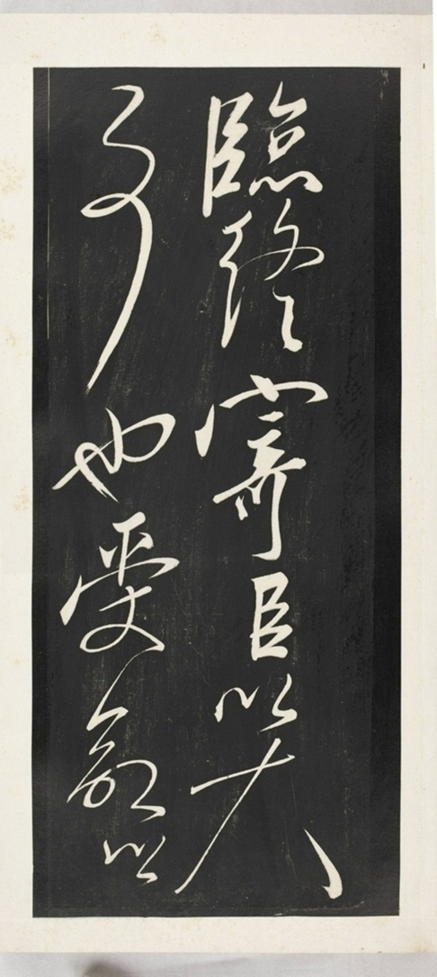 臨終寄臣以大
事也受命以